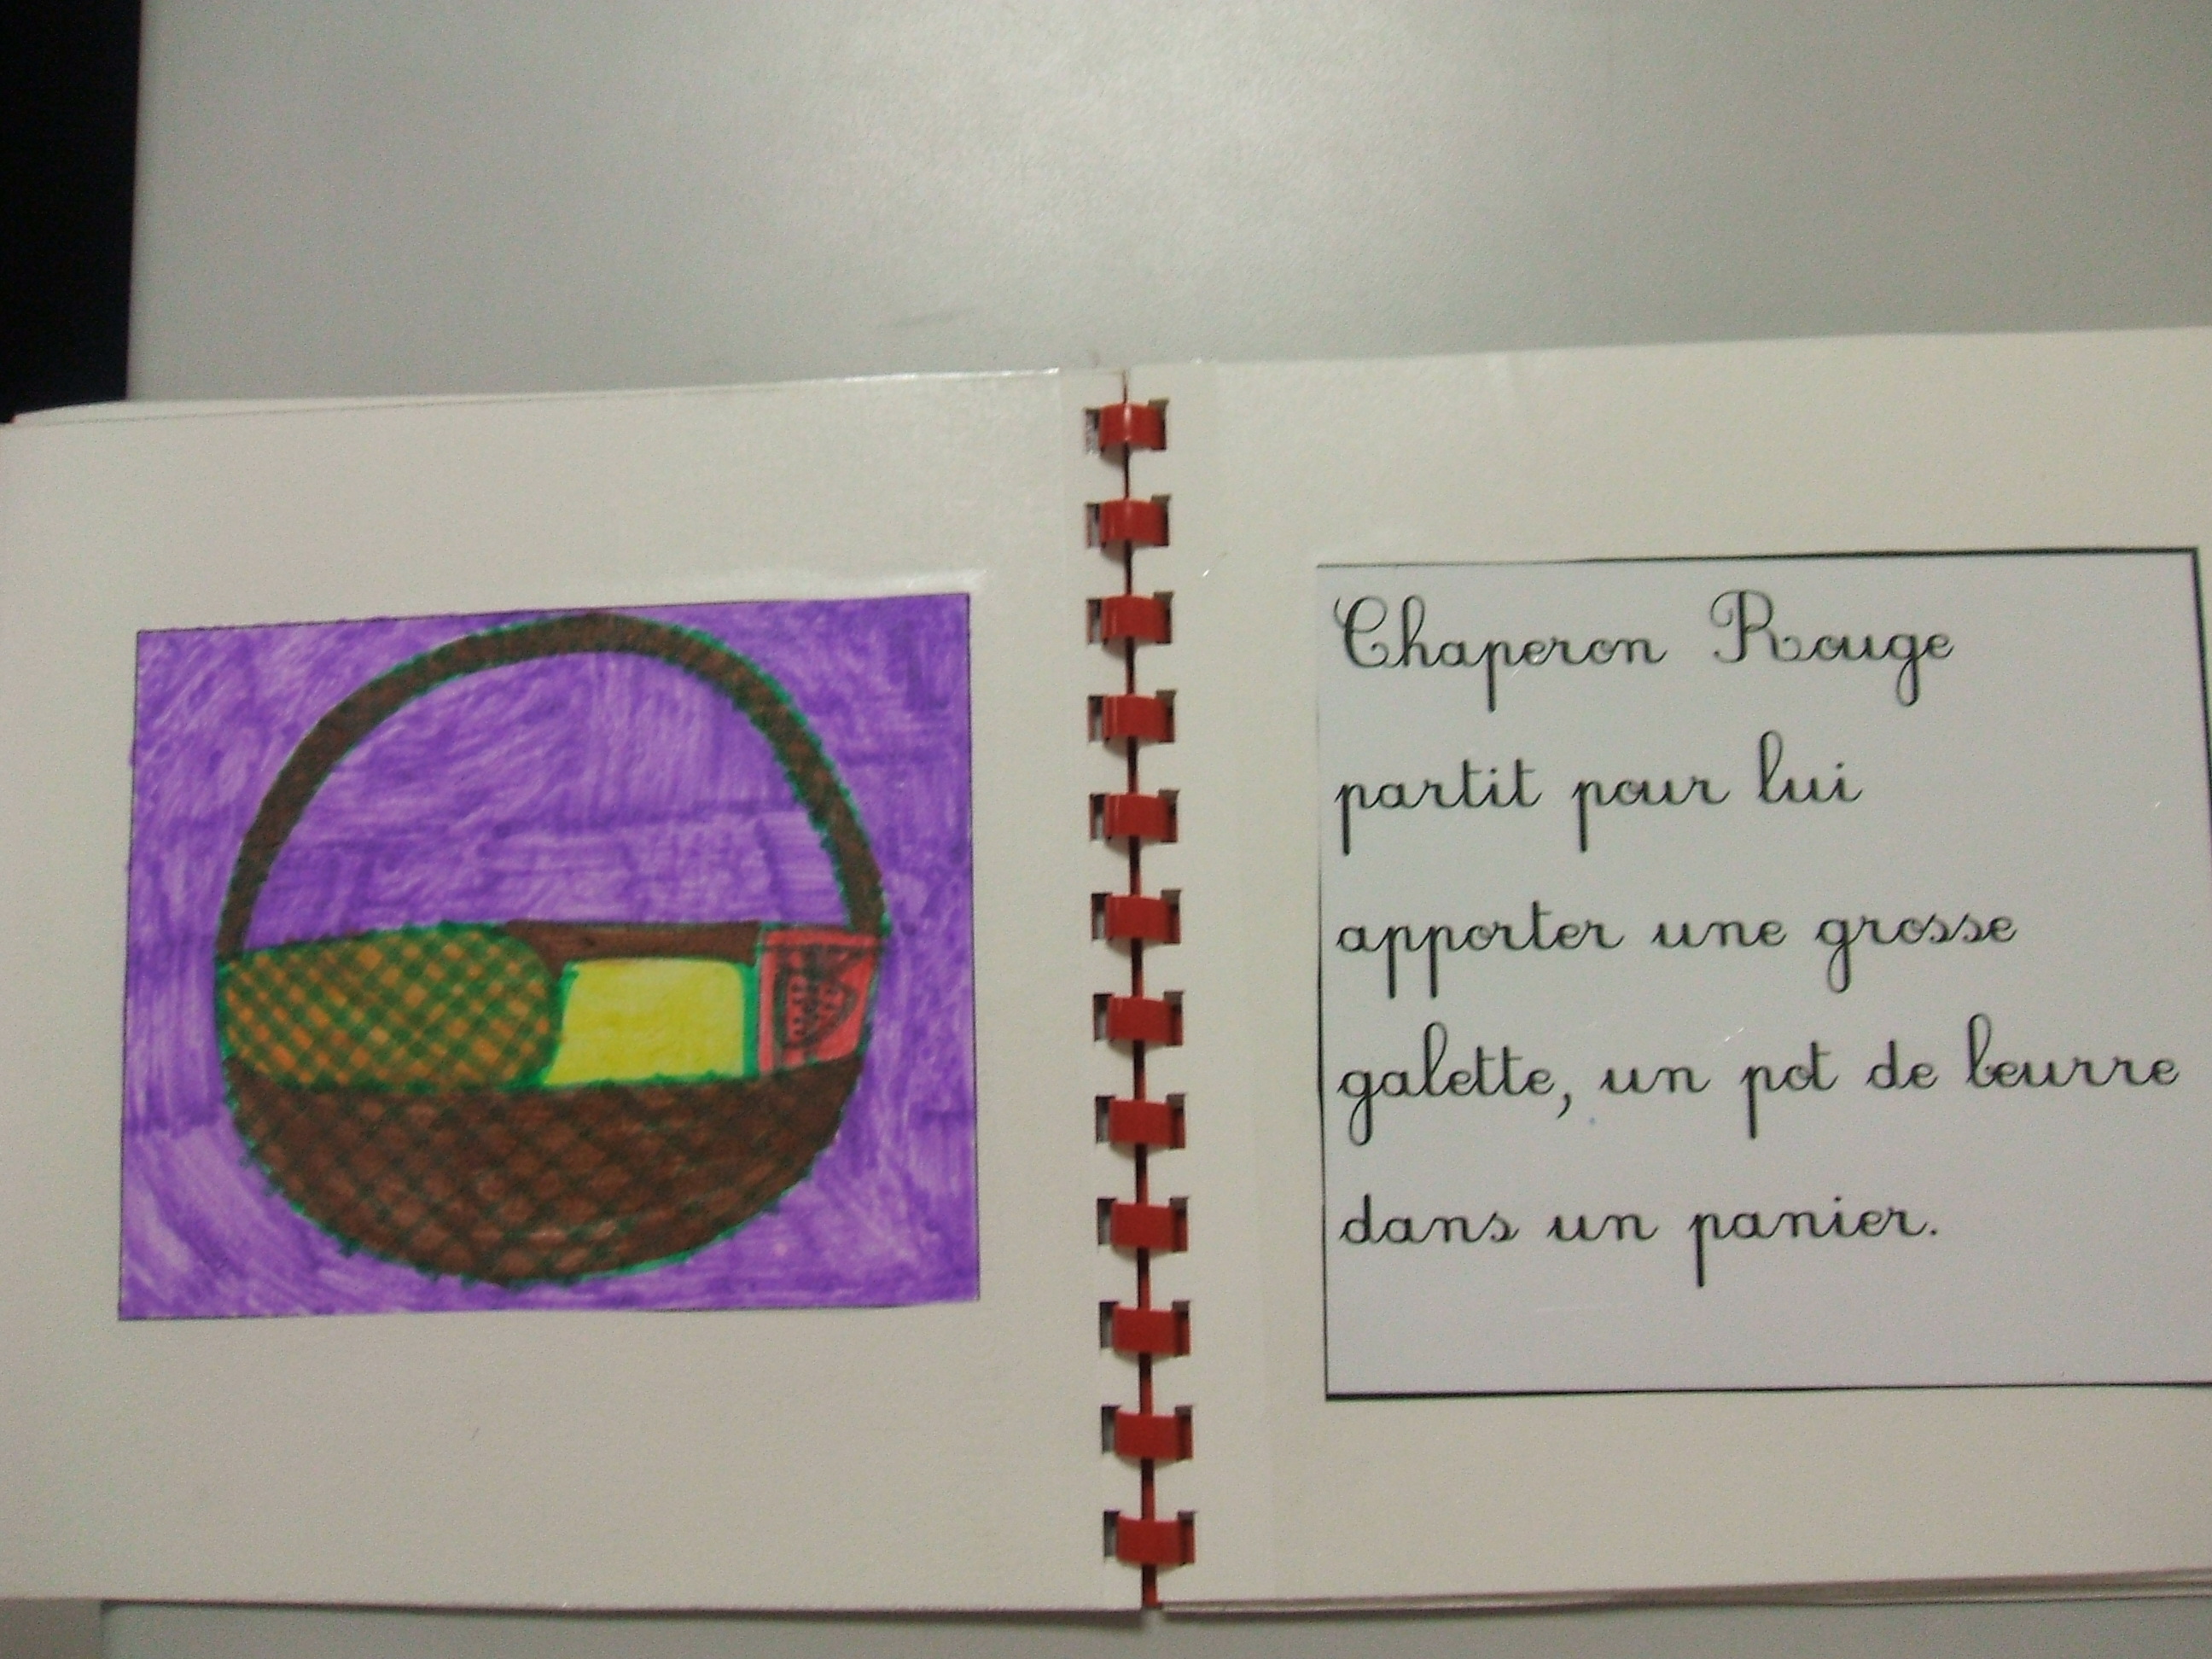 Chaperon Rouge
partit pour lui
apporter une grosse
galette, un pot de beurre
dans un panier.